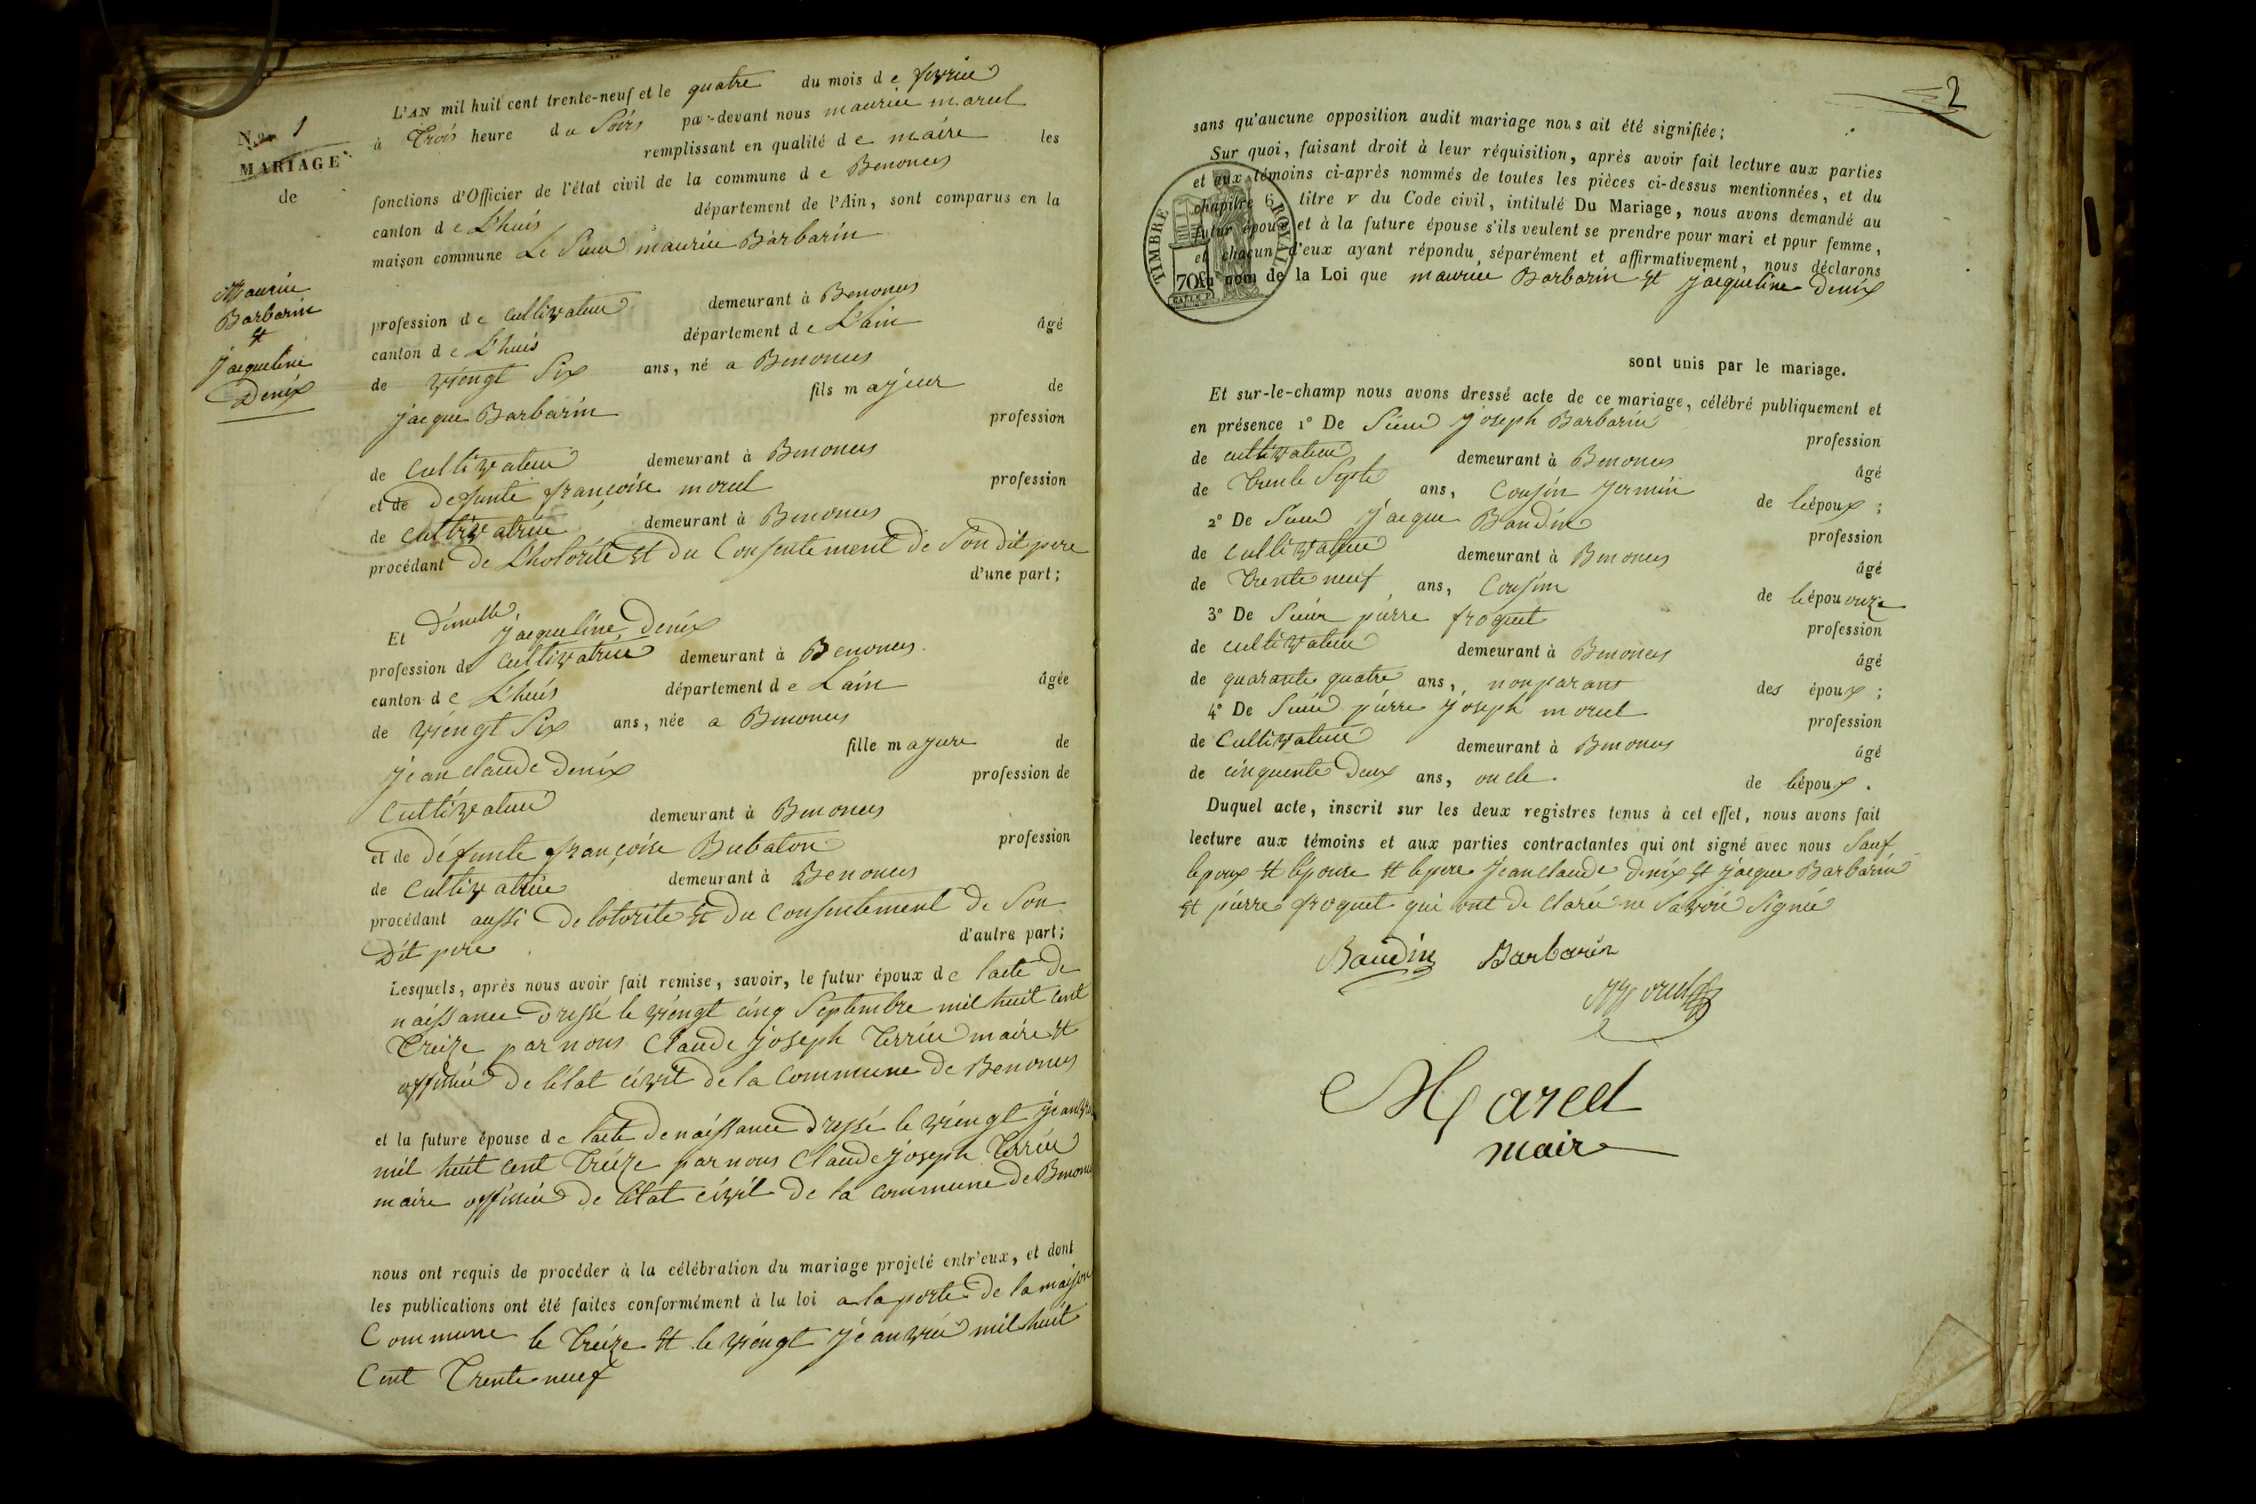 N.º 1
MARIAGE
de
Maurice
Barbarin
et
jacqueline
Denix
L'AN mil huit cent trente-neuf et le quatre du mois de fevrier
à Trois heure du Soirs par-devant nous maurice marcel
remplissant en qualité de maire les
fonctions d'Officier de l'état civil de la commune de Benonces
canton de L'huis département de l'Ain, sont comparus en la
maison commune Le Sieur maurice Barbarin
profession de cultivateur demeurant à Benonces
canton de L'huis département de L'ain âgé
de viengt Six ans, né a Benonces
fils majeur de
jacque Barbarin profession
de cultivateur demeurant à Benonces
et de defunte françoise morel profession
de cultivatrice demeurant à Benonces
procédant de L'hotorité et du Consentement de Son dit pere
d'une part;
Et demelle jacqueline denix
profession de cultivatrice demeurant à Benonces
canton de L'huis département de Lain âgée
de viengt Six ans, née a Benonces
fille majure de
jean claude denix profession de
Cultivateur demeurant à Benonces
et de défunte françoise Bubaton profession
de Cultivatrice demeurant à Benonces
procédant aussi de lotorite et du Consentement de Son
dit pere d'autre part;
Lesquels, après nous avoir fait remise, savoir, le futur époux de lacte de
naissance dressé le viengt cinq Septembre mil huit cent
Treize par nous Claude joseph Terrier maire et
officier de létat civil de la Commune de Benonces
et la future épouse de lacte de naissance dressé le viengt jeanvier
mil huit cent Treize par nous Claude joseph Terrier
maire officier de létat civil de la commune de Benonces
nous ont requis de procéder à la célébration du mariage projeté entr'eux, et dont
les publications ont été faites conformément à la loi a la porte de la maison
Commune le Treize et le viengt jeanvier mil huit
Cent Trente neuf
2
sans qu'aucune opposition audit mariage nous ait été signifiée;
Sur quoi, faisant droit à leur réquisition, après avoir fait lecture aux parties
et aux témoins ci-après nommés de toutes les pièces ci-dessus mentionnées, et du
chapitre 6 titre v du Code civil, intitulé Du Mariage, nous avons demandé au
futur époux et à la future épouse s'ils veulent se prendre pour mari et pour femme,
et chacun d'eux ayant répondu séparément et affirmativement, nous déclarons
au nom de la Loi que maurice Barbarin et jacqueline denix
TIMBRE ROYAL
70c
sont unis par le mariage.
Et sur-le-champ nous avons dressé acte de ce mariage, célébré publiquement et
en présence 1º De Sieur joseph Barbarin profession
de cultivateur demeurant à Benonces âgé
de Trente Septe ans, Cousin jermin de lépoux;
2º De Sieur jacque Baudin profession
de cultivateur demeurant à Benonces âgé
de Trente neuf ans, Cousin de lépououze
3º De Sieur pierre froquet profession
de cultivateur demeurant à Benonces âgé
de quarante quatre ans, non parant des époux;
4º De Sieur pierre joseph morel profession
de Cultivateur demeurant à Benonces âgé
de cinquente deux ans, oncle de lépoux.
Duquel acte, inscrit sur les deux registres tenus à cet effet, nous avons fait
lecture aux témoins et aux parties contractantes qui ont signé avec nous Sauf
lepoux et lépouse et le pere jean claude denix et jacque Barbarin
et piérre froquet qui ont de claré ne Savoir Signié
Baudin Barbarin
Morel
Marcel
maire